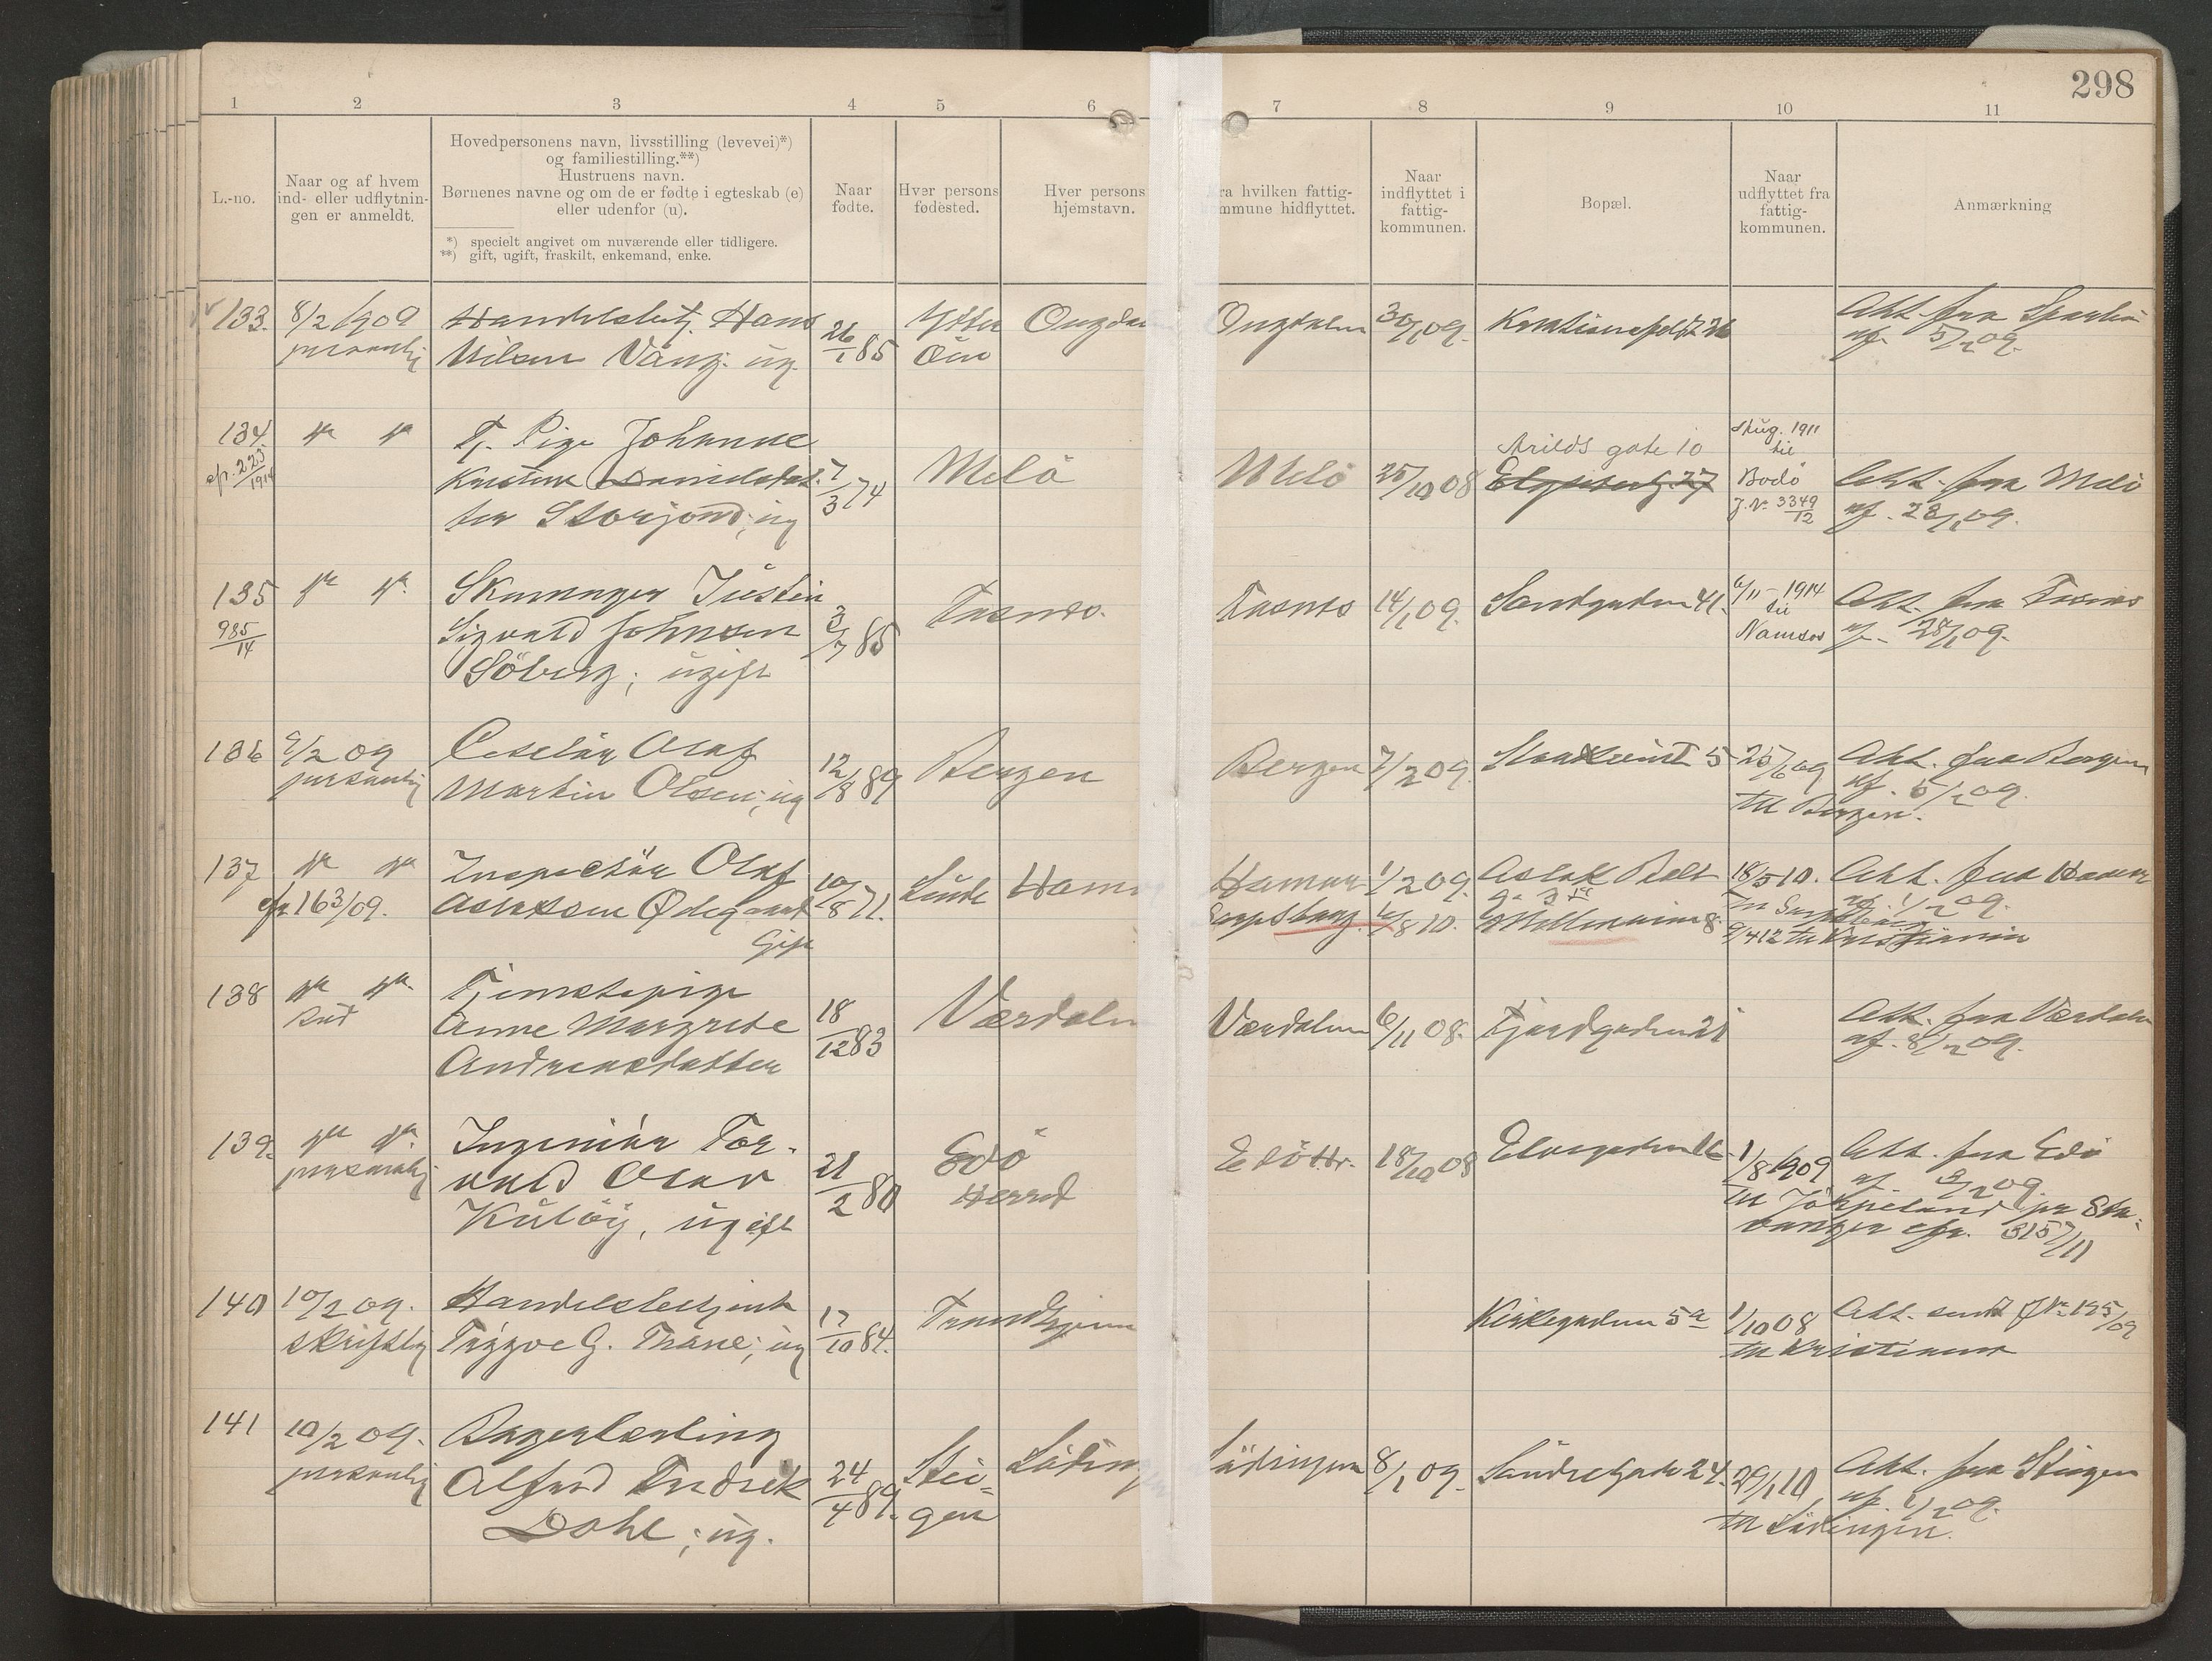 298
1 2 3 4 5 6 7 8 9 10 11
L.-no.
Naar og af hvem
ind- eller udflytnin-
gen er anmeldt.
Hovedpersonens navn, livsstilling (levevei)*)
og familiestilling.**)
Hustruens navn.
Børnenes navne og om de er fødte i egteskab (e)
eller udenfor (u).
*) specielt angivet om nuværende eller tidligere.
**) gift, ugift, fraskilt, enkemand, enke.
Naar
fødte.
Hver persons
fødested.
Hver persons
hjemstavn.
ra hvilken fattig-
mmune hidflyttet.
Naar
indflyttet i
fattig-
kommunen.
Bopæl.
Naar
udflyttet fra
fattig-
kommunen.
Anmærkning
133. 8/2 1909
personlig
Handelsbetj. Hans
Nilsen Vang; ug.
26/1 85
Ytter
Öen
Opdal
Opdalen
30/1 09.
Att. fra
af 5/2 09.
134.
cfr. 223/1914
T. Pige Johanne
Kristine Danielsdat-
ter Storjord; ug
7/3 74
Melö
Melö
25/10 08
Arilds gate 10
Aug. 1911
til
Bodö
J.No 3349/12
Att. fra Melö
af. 23/1 09.
135
985/14
Skrædder Justin
Sigvald Johnsen
Söberg; ugift
3/7 85
Fosnes.
Fosnes
14/1 09.
Sandgaden 41.
6/11 - 1914
til
Namsos
Att. fra Fosnes
af 28/1 09.
136 9/2 09
personlig
Ciselör Olaf
Martin Olsen; ug
12/8 89
Bergen
Bergen
7/2 09.
5
25/6 09
til Bergen.
Att. fra Bergen
af. 5/2 09.
137
cfr 163/09.
Inspektör Olaf
Aslaksen Ødegaard
Gift
10/8 71.
Lunde
Ham
Hamar
1/2 09.
Aslak Bolts
g.
18/5 10.
til Sarpsborg
Att. fra Hamar
af. 1/2 09.
Sarpsborg.
6/8 10.
Møllenberg 8.
9/4 12 til Kristiania
138
Tjenestepige
Anne Margrete
Andreasdatter
18/12 83
Værdalen
Værdalen
6/11 08.
Fjordgaden 21
Att. fra Værdalen
af. 8/2 09.
139.
personlig
Ingeniör Tor-
vald Olav
Kulöy, ugift
21/2 80
Edö
Herred
Edö Hr.
18/10 08
Elvegaden
1/8 1909
til Jörpeland pr Sta-
vanger cfr. 3157/11
Att. fra Edö
af 3/2 09.
140 10/2 09.
skriftlig
Handelsbetjent
Tryggve G. Thane; ug
17/10 84.
Trondhjem
Kirkegaden 5a
1/10 08
til Kristiania
Att. sendt J No 195/09
141 10/2 09.
personlig
Bagerlærling
Alfred Fredrik
Dahl; ug.
24/4 89.
Stei-
gen
Lödingen
Lödingen
8/1 09.
Söndregate 24.
29/1 10
til Lödingen.
Att. fra Steigen
af. 1/2 09.